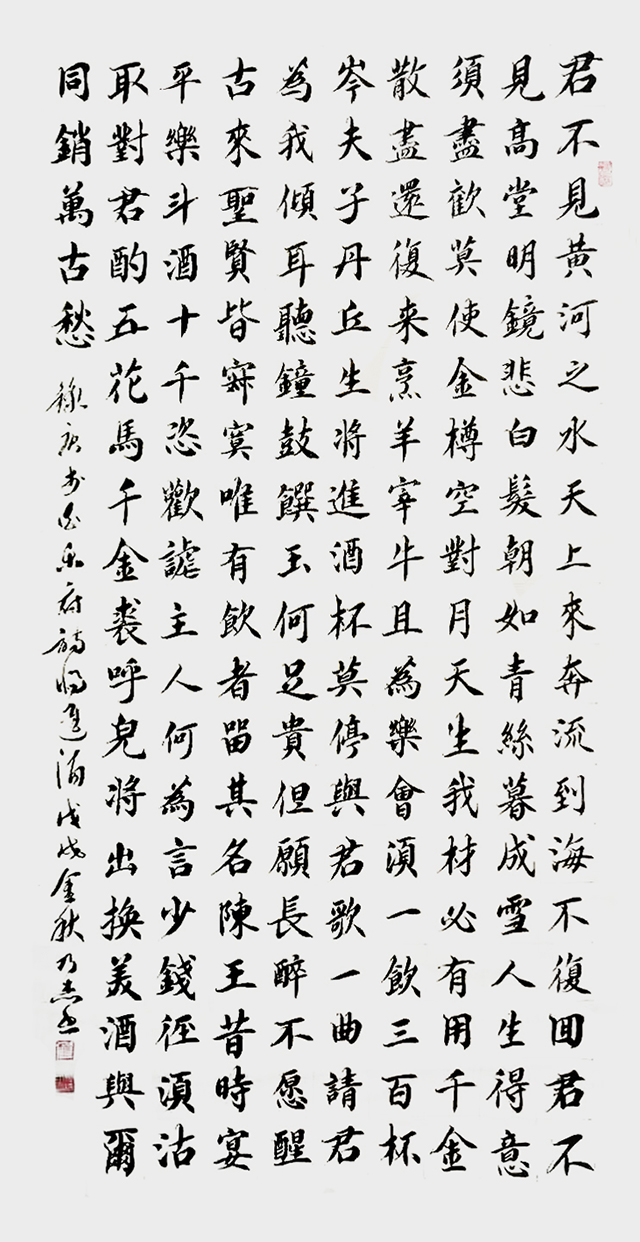 君不見黃河之水天上來奔流到海不復回君不
見高堂明鏡悲白髮朝如青絲暮成雪人生得意
須盡歡莫使金樽空對月天生我材必有用千金
散盡還復来烹羊宰牛且為樂會須一飲三百杯
岑夫子丹丘生將進酒杯莫停與君歌一曲請君
為我傾耳聽鐘鼓饌玉何足貴但願長醉不愿醒
古來聖賢皆寂寞唯有飲者留其名陳王昔時宴
平樂斗酒十千恣歡謔主人何為言少錢徑須沽
取對君酌五花馬千金裘呼兒將出換美酒與爾
同銷萬古愁 錄唐李白樂府詩將進酒戊戌金秋乃志